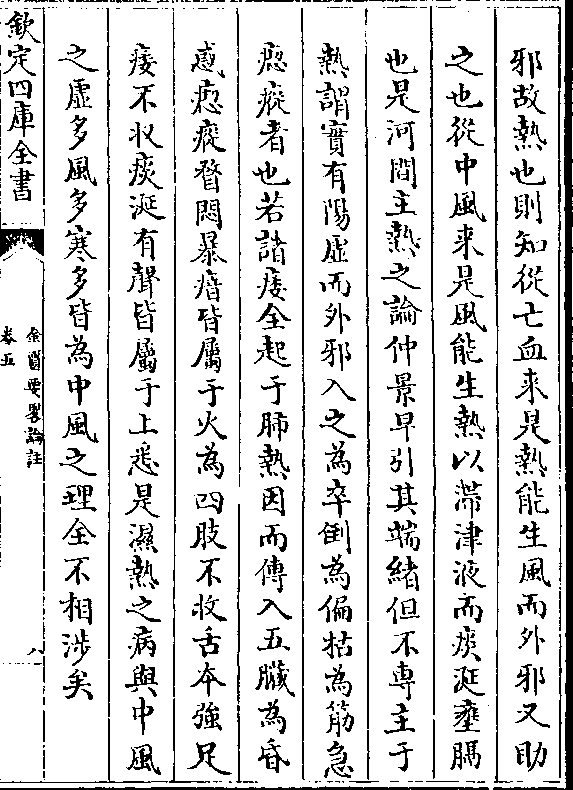 邪故熱也則知從亡血来是熱能生風而外邪又助
之也從中風来是風能生熱以滯津液而痰涎壅膈
也是河間主熱之論仲景早引其端緒但不専主于
熱謂實有陽虚而外邪入之為卒倒為偏枯為筋急
瘛瘲者也若諸痿全起于肺熱因而傳入五臟為昏
惑瘛瘲瞀悶暴瘖皆屬于火為四肢不收舌本強足
痿不收痰涎有聲皆屬于上悉是濕熱之病與中風
之虚多風多寒多皆為中風之理全不相涉矣
欽定四庫全書
金匱要畧論註
卷五
八